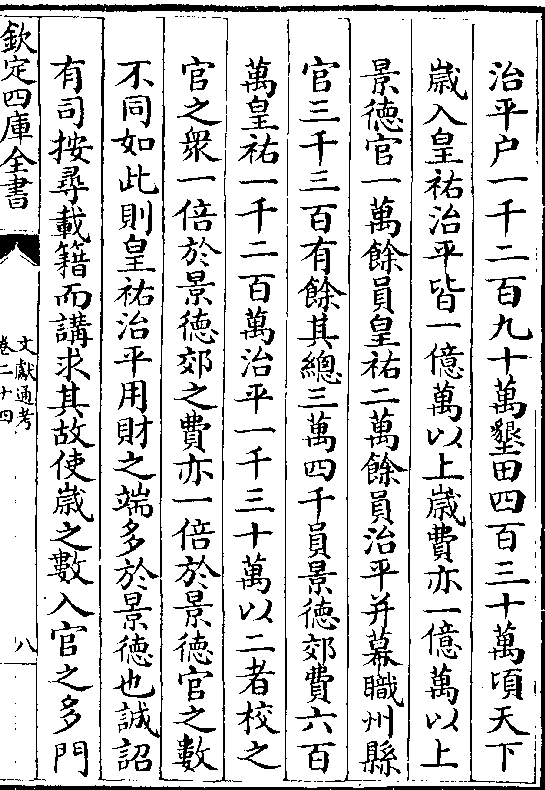 治平户一千二百九十萬墾田四百三十萬頃天下
嵗入皇祐治平皆一億萬以上嵗費亦一億萬以上
景徳官一萬餘員皇祐二萬餘員治平并幕職州縣
官三千三百有餘其總三萬四千員景徳郊費六百
萬皇祐一千二百萬治平一千三十萬以二者校之
官之衆一倍於景徳郊之費亦一倍於景徳官之數
不同如此則皇祐治平用財之端多於景徳也誠詔
有司按尋載籍而講求其故使嵗之數入官之多門
欽定四庫全書
文獻通考
卷二十四
八